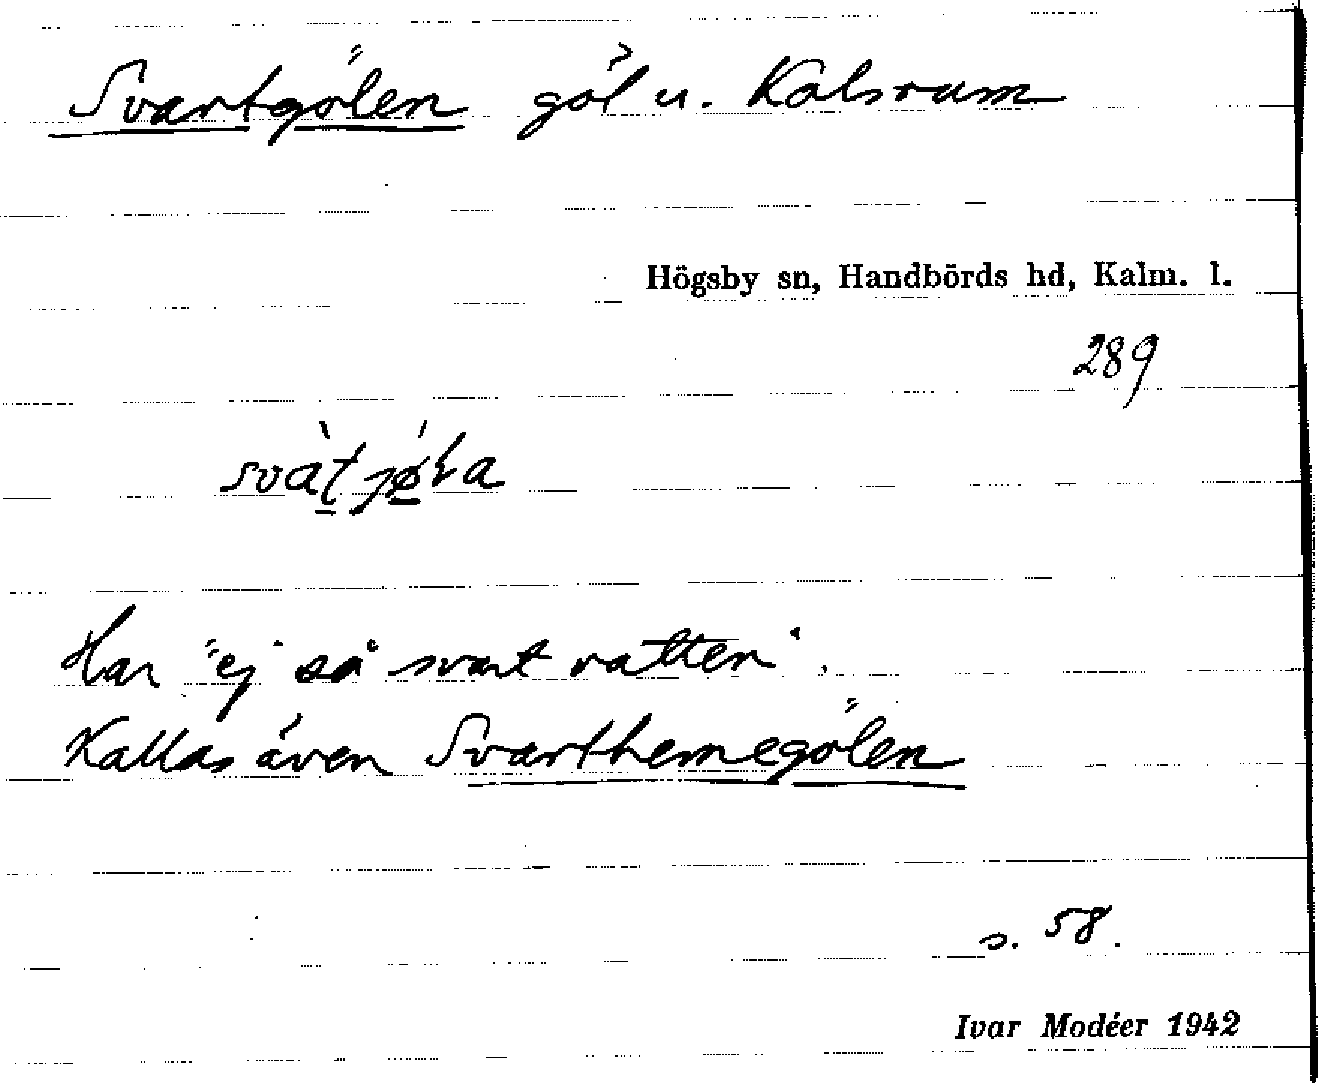 Svartgölen göl u. Kalsrum
Högsby sn, Handbörds hd, Kalm. l.
289
svàt jǿla
Har "ej så svart vatten".
Kallas även Svarthemegölen
s. 58.
Ivar Modéer 1942